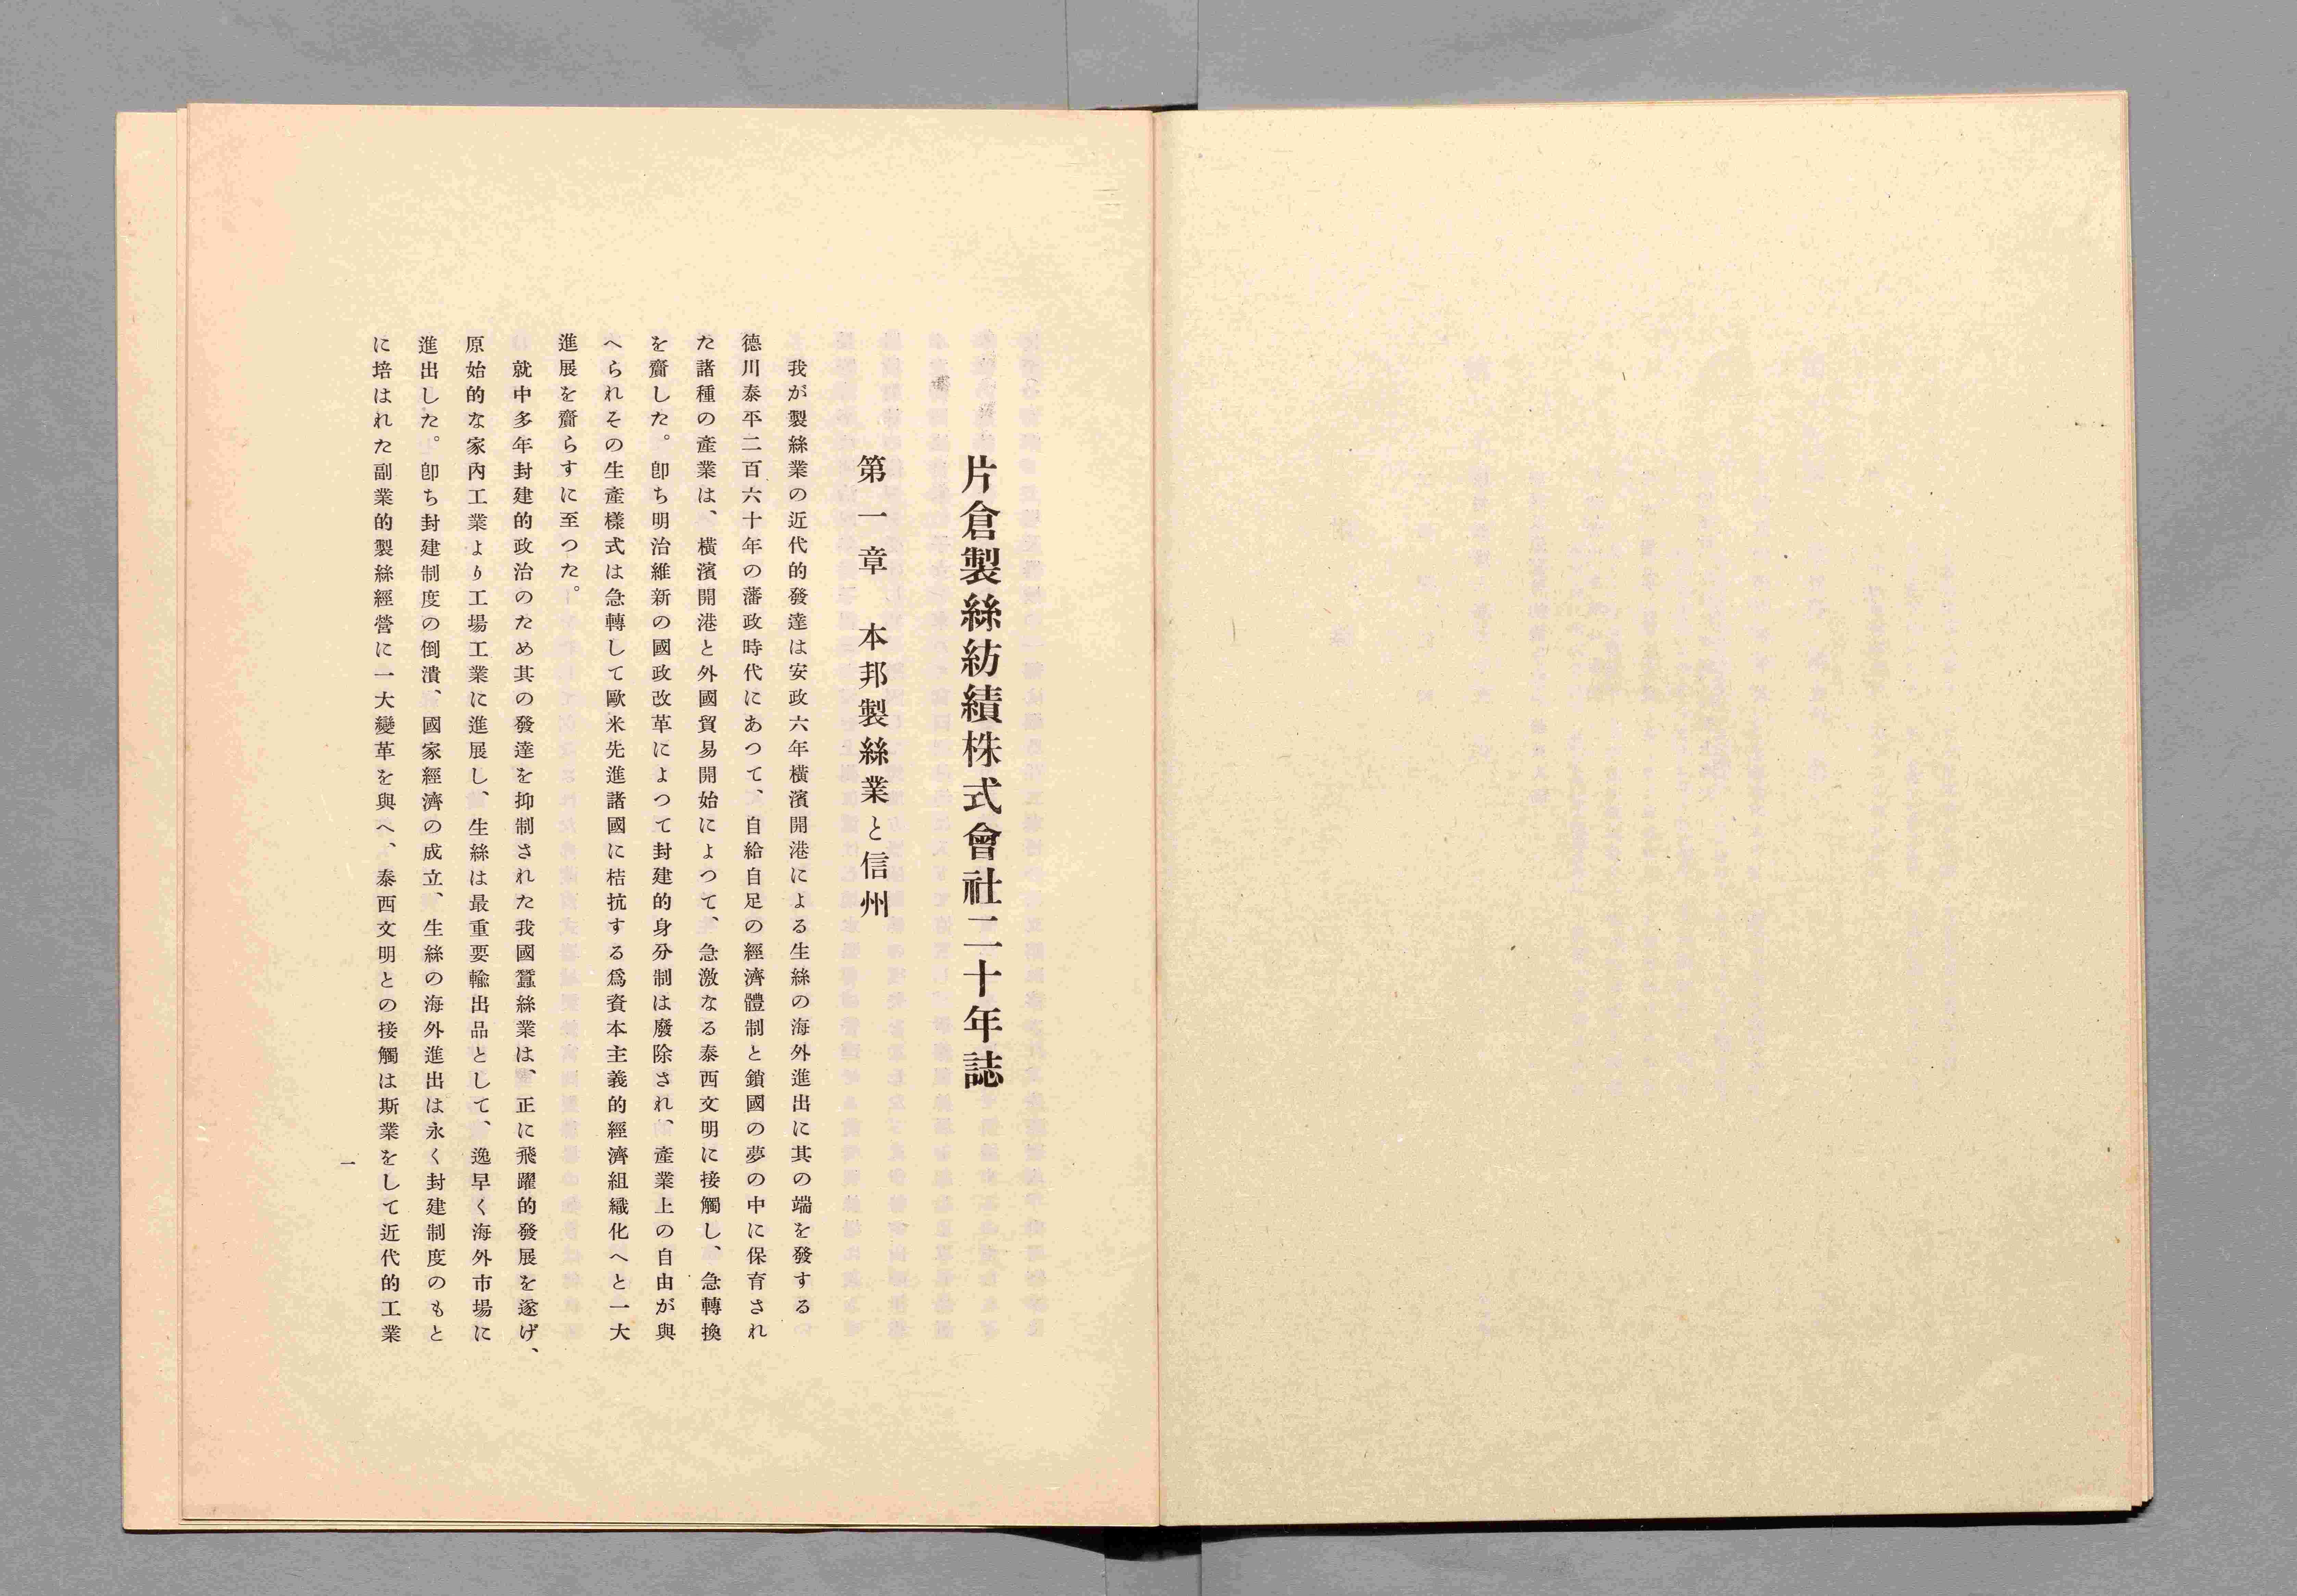 片倉製絲紡績株式會社二十年誌
第一章　本邦製絲業と信州
我が製絲業の近代的發達は安政六年橫濱開港による生絲の海外進出に其の端を發する
德川泰平二百六十年の藩政時代にあつて、自給自足の經濟體制と鎖國の夢の中に保育され
た諸種の產業は、橫濱開港と外國貿易開始によつて、急激なる泰西文明に接觸し、急轉換
を齎した。卽ち明治維新の國政改革によつて封建的身分制は廢除され、產業上の自由が與
へられその生產樣式は急轉して歐米先進諸國に桔抗する爲資本主義的經濟組織化へと一大
進展を齎らすに至つた。
就中多年封建的政治のため其の發達を抑制された我國蠶絲業は、正に飛躍的發展を遂げ、
原始的な家內工業より工場工業に進展し、生絲は最重要輸出品として、逸早く海外市場に
進出した。卽ち封建制度の倒潰、國家經濟の成立、生絲の海外進出は永く封建制度のもと
に培はれた副業的製絲經營に一大變革を與へ、泰西文明との接觸は斯業をして近代的工業
一